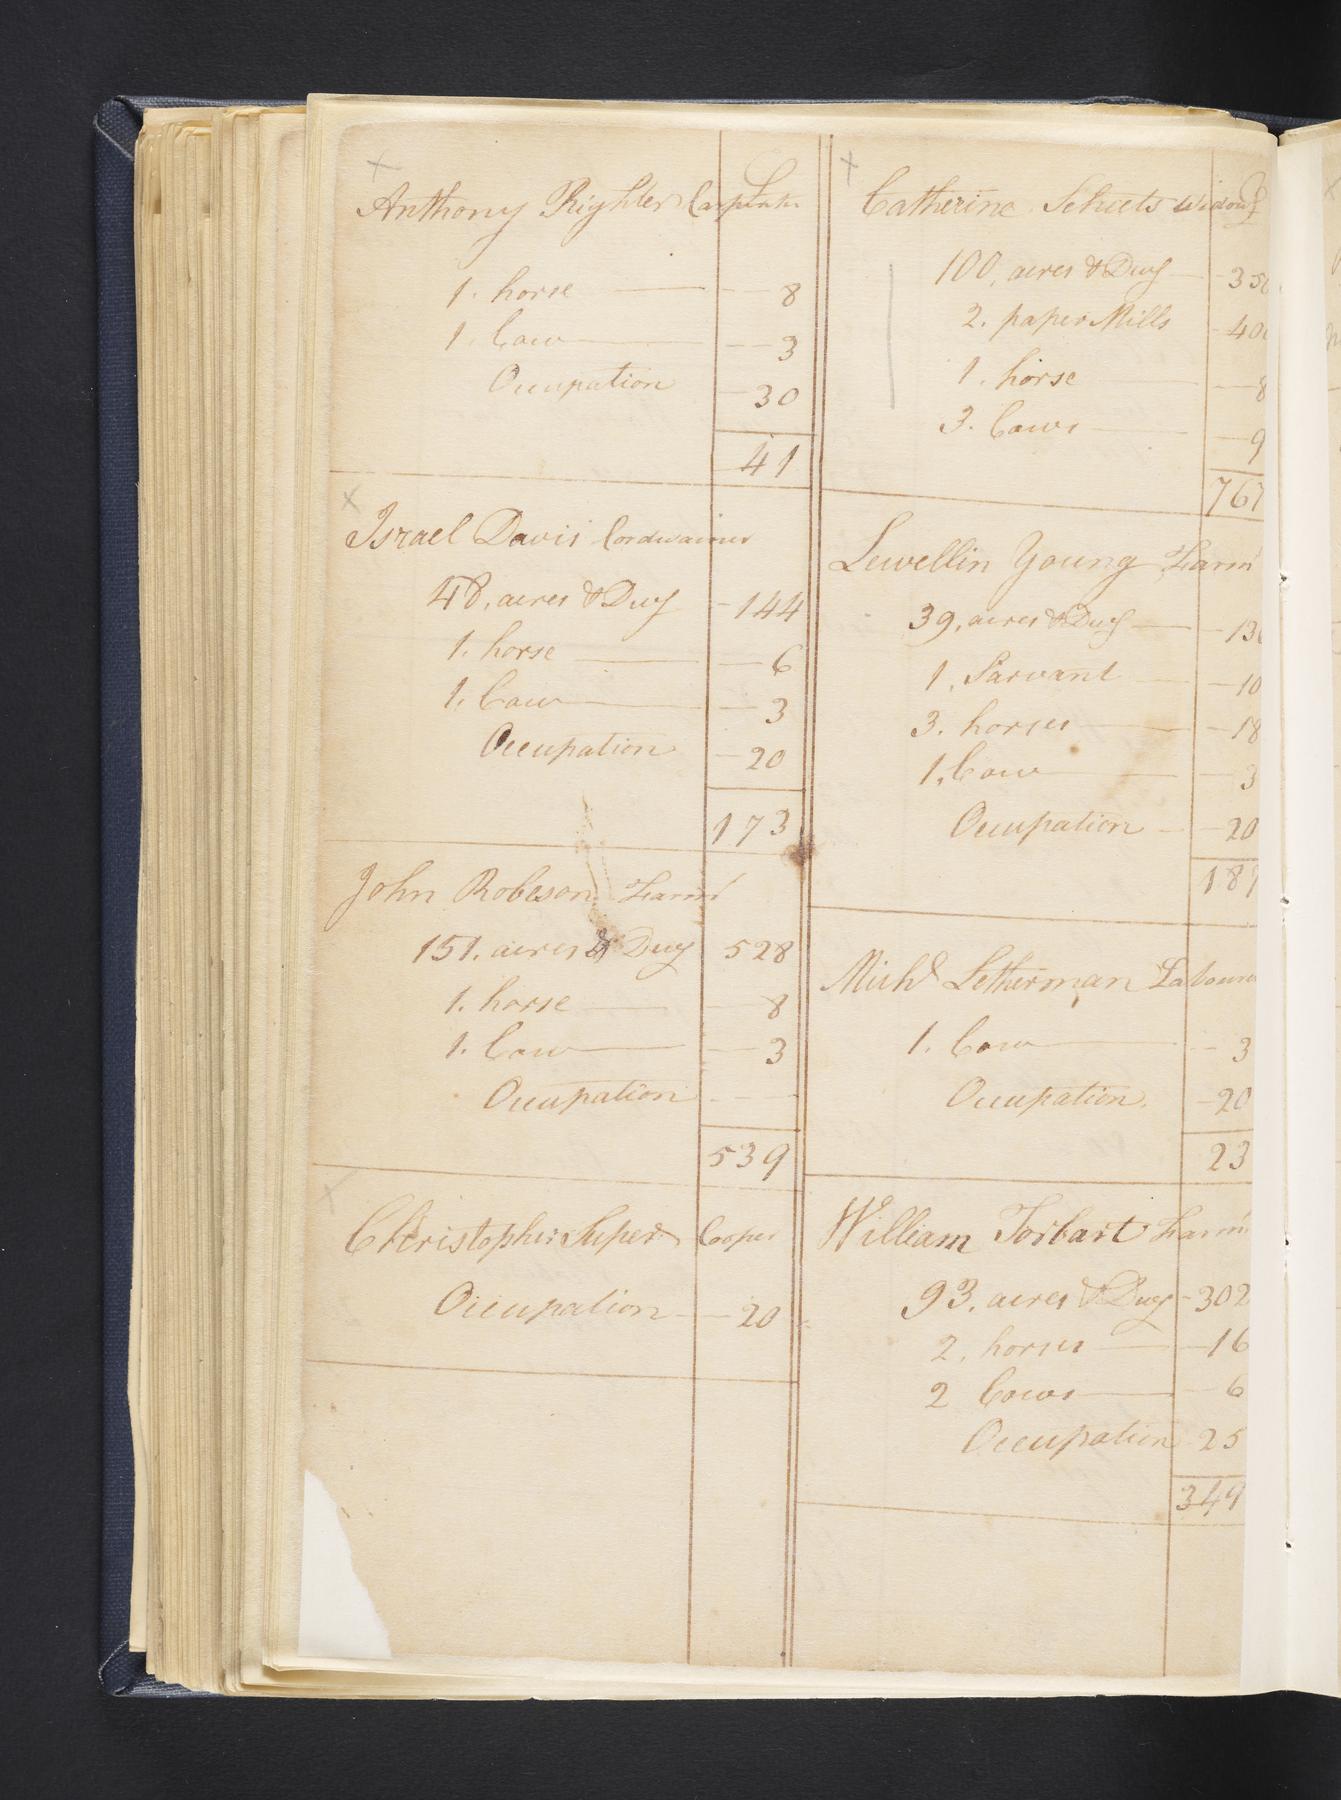 £
Anthony Righter Carpenter
1. horse 8
1. Cow 3
Occupation 30
41
Israel Davis Cordwainer
48. acres & Dwg 144
1. horse 6
1. Cow 3
Occupation 20
173
John Robeson Farmr
151. acres & Dwg 528
1. horse 8
1. Cow 3
Occupation
539
Christopher Super Cooper
Occupation 20
£
Catherine Schuts Widow
100. acres & Dwg 350
2. paper Mills 400
1. horse 8
3. Cows 9
767
Lewellin Young Farmr
39. acres & Dwg 13
1. Sarvant 10
3. horses 18
1. Cow 3
Occupation 20
187
Michl Letherman Laboure
1. Cow 3
Occupation 20
23
William Torbart Farmr
93. acres & Dwg 302
2. horses 16
2 Cows 6
Occupation 25
349